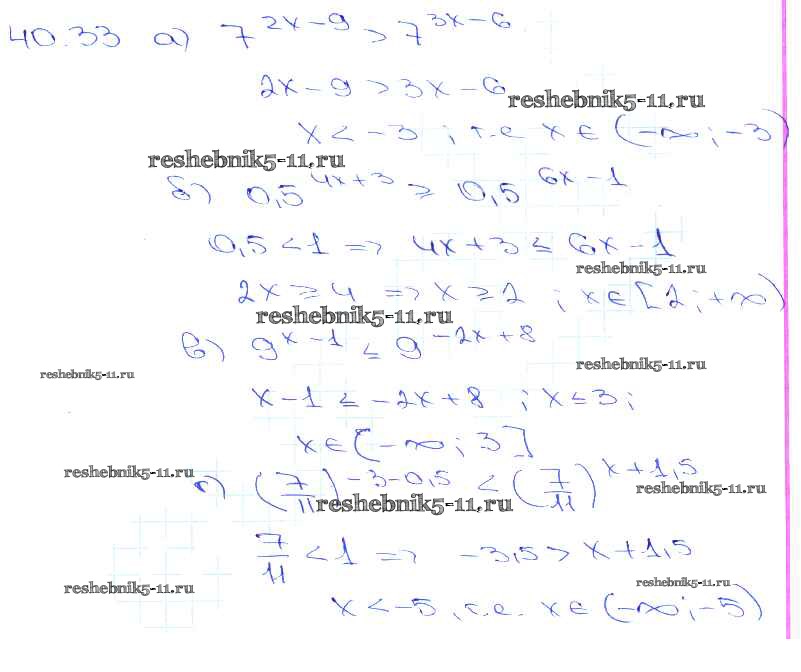 40.33 а) 7^(2x-9) > 7^(3x-6)
2x-9 > 3x-6
reshebnik5-11.ru
x < -3 ; т.е x ∈ (-∞; -3)
reshebnik5-11.ru
б) 0,5^(4x+3) ≥ 0,5^(6x-1)
0,5 < 1 => 4x+3 ≤ 6x-1
reshebnik5-11.ru
2x ≥ 4 => x ≥ 2 ; x ∈ [2; +∞)
reshebnik5-11.ru
в) 9^(x-1) ≤ 9^(-2x+8)
reshebnik5-11.ru
reshebnik5-11.ru
x-1 ≤ -2x+8 ; x ≤ 3;
x ∈ (-∞; 3]
reshebnik5-11.ru
г) (7/11)^(-3-0,5) < (7/11)^(x+1,5)
reshebnik5-11.ru
reshebnik5-11.ru
7/11 < 1 => -3,5 > x+1,5
reshebnik5-11.ru
reshebnik5-11.ru
x < -5, т.е. x ∈ (-∞; -5)